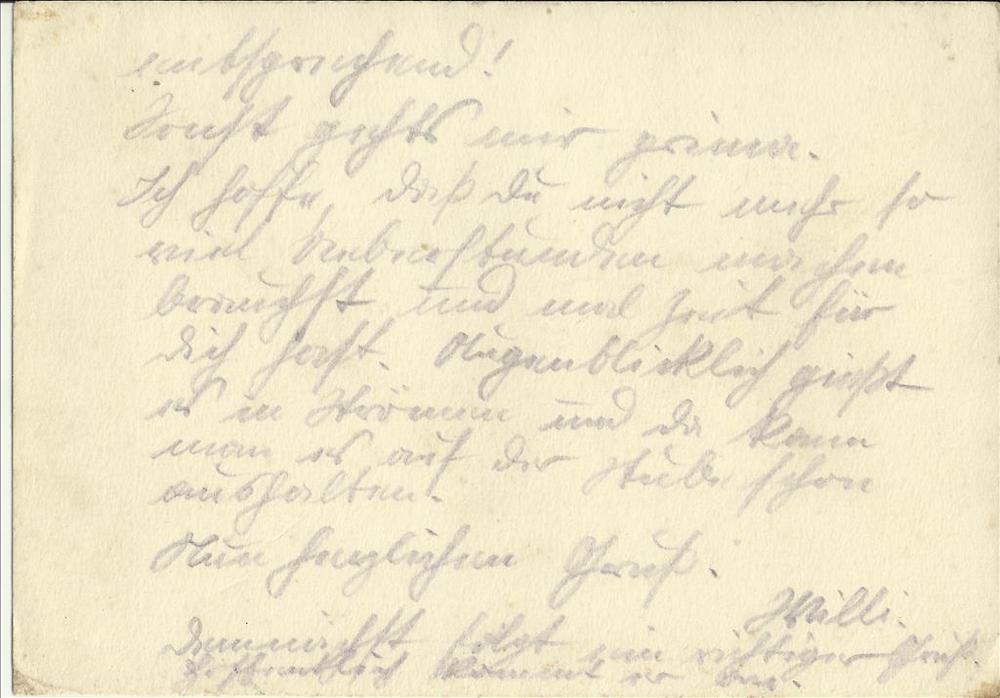 entsprechend!
Sonst gehts mir prima.
Ich hoffe, daß Du nicht mehr so
viel Ueberstunden machen
brauchst und mal Zeit für
Dich hast. Augenblicklich gießt
es in Strömen und da kann
man es auf der Stube schon
aushalten.
Nun herzlichen Gruß.
Willi.
Demnächst folgt ein richtiger
Hoffentlich kommt er an.